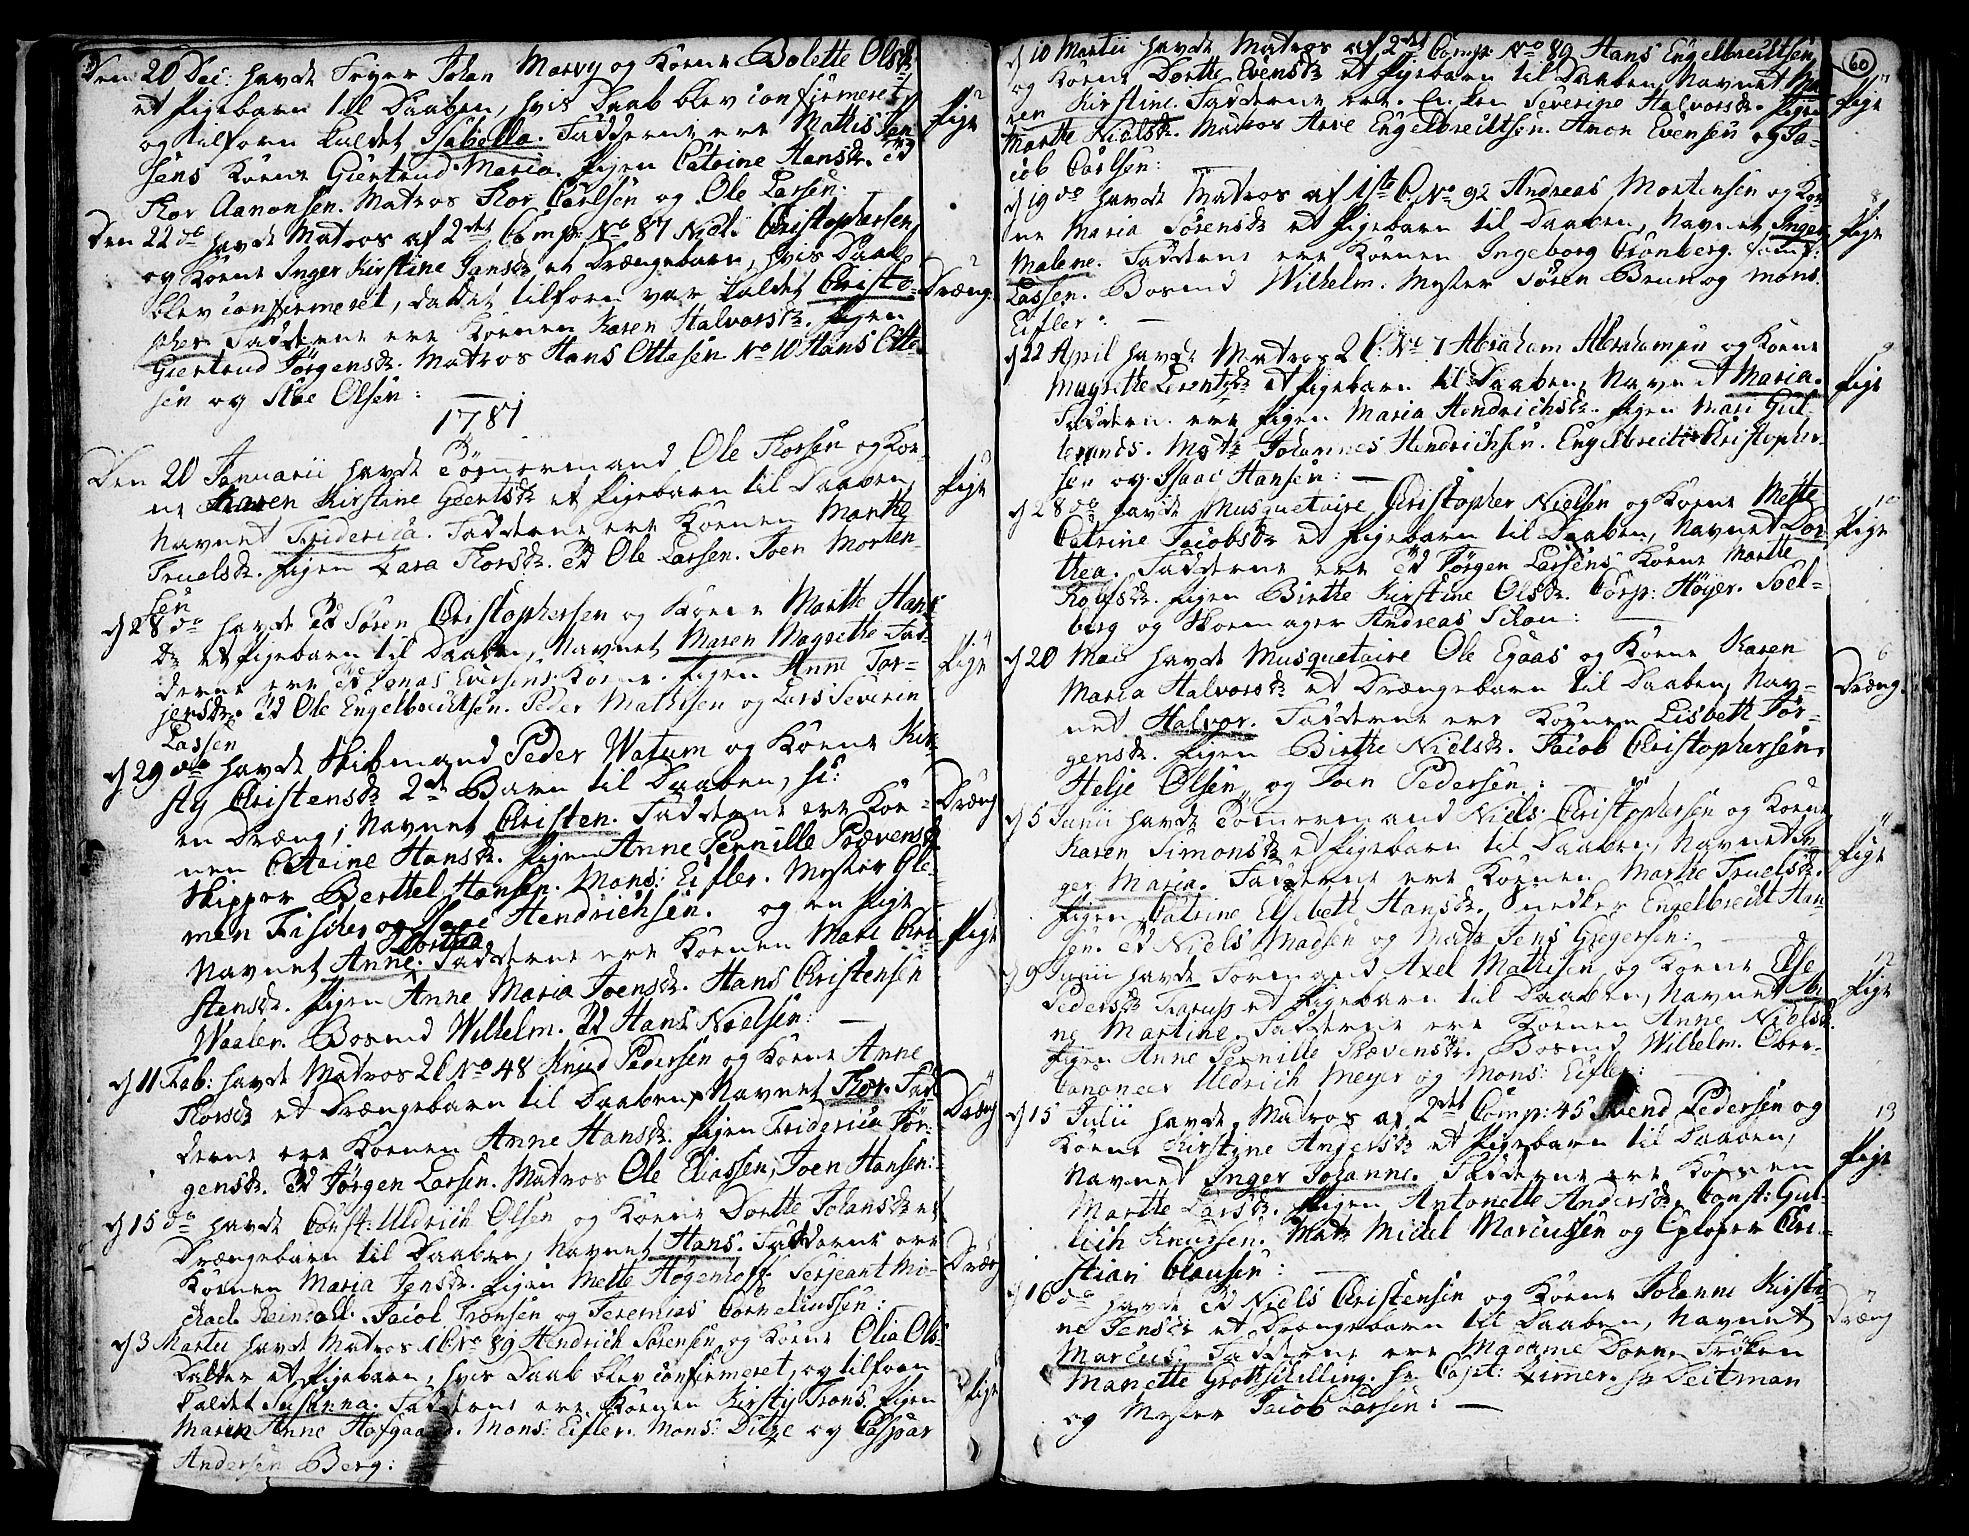 Den 20 Dec: havde Fryer Johan Marvy og Konene Bolette Olsdr
et Pigebarn till Daaben, hvis Daab blev confirmeret,
og tilforn kaldet Isabella. Fadderne ere Mathis Jan-
sens Konene Giertrud Maria. Pigen Catrine Hansdr. Ed
Thor Aanonsen. Matros Thor Carlsen og Ole Larsen:
Pige
Den 22 do havde Matros af 2det Comp: No 87 Niels Christophersen
og Konene Inger Kirstine Jansdr et Drængebarn, hvis Daab
blev confirmeret, da det tilforn var kaldet Christo-
pher. Fadderne ere Konen Karen Halvorsdr. Pigen
Giertrud Jörgensdr. Matros Hans Ottesen No 10 Hans Otte-
sen og Olsen:
Dræng
1781
Den 20 Januarii havde Tömmermand Ole Thorsen og Kon-
ne Karen Kirstine Geertsdr et Pigebarn til Daaben,
Navnet Friderica. Fadderne ere Konen Marthe
Truelsdr. Pigen Sara Thorsdr. Ed Ole Larsen. Joen Morten-
sen
1
Pige
d 28 do havde Ed Sören Christophersen og Konene Marthe Hans
dr et Pigebarn til Daaben, Navnet Maren Magrethe Fad-
derne ere Ed Jonas Evensens Konene. Pigen Anne Tor-
jersdr. Ed Ole Engelbrecktsen. Peder Mathisen og Lars Severin
Lassen
Pige
d 29 do havde Skibmand Peder Watum og Konene Kir-
sty Christensdr 2de Barn til Daaben, sc:
en Dræng; Navnet Christen. Fadderne ere Ko-
nen Catrine Hansdr. Pigen Anne Pernille Prævensdr
Skipper Berthel Hansen. Mons: Eifler. Mester Cle-
men Fischer og Isaac Hendrichsen. og en Pige
Dorthea
Navnet Anne. Fadderne ere Konen Mari Chri-
stensdr. Pigen Anne Maria Joensdr. Hans Christensen
Waaler. Bosmd Wilhelm. Ed Hans Noelsen:
Dræng
Pige
d 11 Feb: havde Matros 2C No 48 Knud Pedersen og Konene Anne
Thorsdr et Drængebarn til Daaben, Navnet Thor. Fad-
derne ere Konen Anne Hansdr. Pigen Friderica Jör-
gensdr. Ed Jörgen Larsen. Matros Ole Eliassen, Joen Hansen:
Dræng
d 15 do havde Const: Uldrich Olsen og Konene Dorthe Johansdr et
Drængebarn til Daaben, Navnet Hans. Fadderne ere
Konen Maria Jensdr. Pigen Mette Högenhoff. Serjeant Mi-
chael Reinholt. Jacob Tronsen og Jeremias Corneliussen:
Dræng
d 3 Martii havde Matros 1C No 89 Hendrich Sörensen og Konene Olia Ols
Datter et Pigebarn, hvis Daab blev confirmeret, og tilforn
kaldet Susanna. Fadderne ere Konen Kirsty Trons. Pigen
Maren Anne Hofgaard. Mons: Eifler. Mons: Ditze og Caspar
Andersen Berg:
Pige
60
d 10 Martii havde Matros af 2det Comp: No 89 Hans Engelbrecktsen
og Konene Dorthe Evensdr et Pigebarn til Daaben, Navnet Ma-
ren Kirstine. Fadderne ere Severine Halvorsdr. Pigen
Marthe Nielsdr. Matros Arne Engelbrecktsen. Anon Evensen og Ja-
cob Carlsen:
7
Pige
d 19 do havde Matros af 1ste C. No 92 Andreas Mortensen og Ko-
ne Maria Sörensdr et Pigebarn til Daaben, Navnet Inger
Malene. Fadderne ere Konen Ingeborg Cronberg.
Lassen. Bosmd Wilhelm. Mester Sören Brun og Mons:
Eifler:
8
Pige
d 22 April havde Matros 2C: No 7 Abraham Abrahamsen og Konene
Magrethe Berentsdr et Pigebarn til Daaben, Navnet Maria.
Fadderne ere Pigen Maria Hendrichsdr. Pigen Mari Gul-
brands. Matr Johannes Hendrichsen. Engelbrecht Christopher-
sen og Isaac Hansen:
9
Pige
d 28 do havde Musquetaire Christopher Nielsen og Konene Mette
Catrine Jacobsdr et Pigebarn til Daaben, Navnet Dor-
thea. Fadderne ere Ed Jörgen Larsens Konene Marthe
Roelfsdr. Pigen Birthe Kirstine Olsdr. Corp: Höyer. Soel-
berg og Skoemager Andreas Schou:
10
Pige
d 20 Maii havde Musquetaire Ole Egaas og Konene Karen
Maria Halvorsdr et Drængebarn til Daaben, Nav-
net Halvor. Fadderne ere Konen Lisbeth Jör-
gensdr. Pigen Birthe Nielsdr. Jacob Christophersen,
Helje Olsen, og Joen Pedersen:
6
Dræng
d 5 Junii havde Tömmermand Niels Christophersen og Konene
Karen Simonsdr et Pigebarn til Daaben, Navnet In-
ger Maria. Fadderne ere Konen Marthe Truelsdr.
Pigen Catrine Elsebeth Hansdr. Snedker Engelbreckt Han-
sen. Ed Niels Madsen og Matr Jens Gregersen:
11
Pige
d 9 Junii havde Formand Axel Mathisen og Konene Else
Pedersdr Traruss et Pigebarn til Daaben, Navnet An-
ne Martine. Fadderne ere Konen Anne Nielsdr.
Pigen Anne Pernille Prævensdr. Bosmd Wilhelm. Ober-
Canoneer Uldrich Meyer og Mons: Eifler:
12
Pige
d 15 Julii havde Matros af 2det Comp: 45 Svend Pedersen og
Konene Kirstine Andersdr et Pigebarn til Daaben,
Navnet Inger Johanne. Fadderne ere Konen
Marthe Larsdr. Pigen Antonette Andersdr. Const: Gul-
leich Knudsen. Matr Michel Marcussen og Chri-
stian Clausen:
13
Pige
d 16 do havde Ed Niels Christensen og Konene Johanne Kirsti-
ne Jensdr et Drængebarn til Daaben, Navnet
Marcus. Fadderne ere Madame Dorne. Fröken
Manette Grottschilling. Hr Capt: Zimer. Hr Leitman
og Mester Jacob Larsen:
7
Dræng